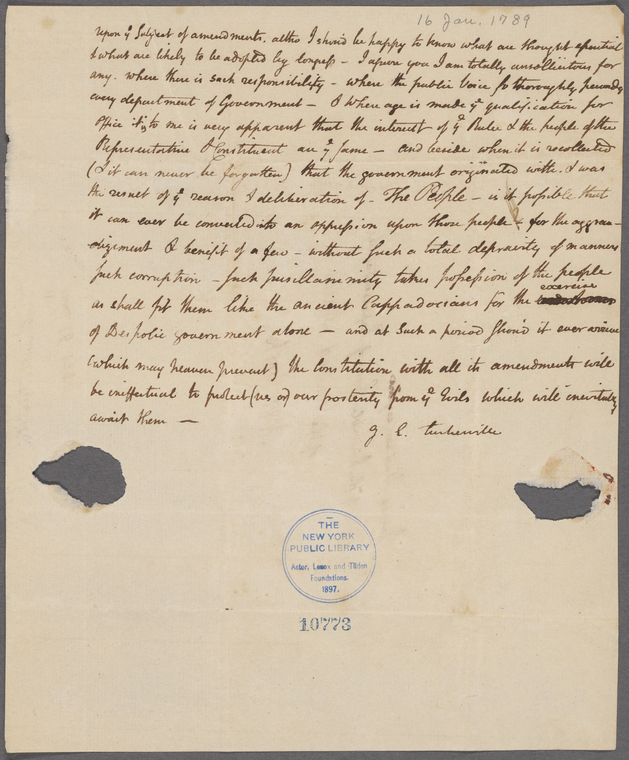 16 Jan. 1789
upon yͤ Subject of amendments. altho I shou'd be happy to know what are thought essential
& what are likely to be adopted by Congress – I assure you I am totally unsollicitous for
any. where there is such responsibility – where the public Voice so thoroughly pervades
every department of Government – & where age is made yͤ qualification for
office it is to me is very apparent that the interest of yͤ Ruler & the people of the
Representative & Constituent are yͤ same – and beside when it is recollected
(& it can never be forgotten) that the government originated with. & was
the result of yͤ reason & deliberation of – The People – is it possible that
it can ever be converted into an oppression upon those people & for the aggran-
dizement & benefit of a few – without such a total depravity of manners
such corruption – such pusillanimity takes possession of the people
as shall fit them like the ancient Cappadocians for the exercise
of Despotic government alone – and at such a period shou'd it ever arrive
(which may heaven prevent) the constitution with all its amendments will
be ineffectual to protect (us or) our posterity from yͤ Evils which will inevitably
await them –
G. L. Turberville
THE
NEW YORK
PUBLIC LIBRARY
Astor, Lenox and Tilden
Foundations.
1897.
10773